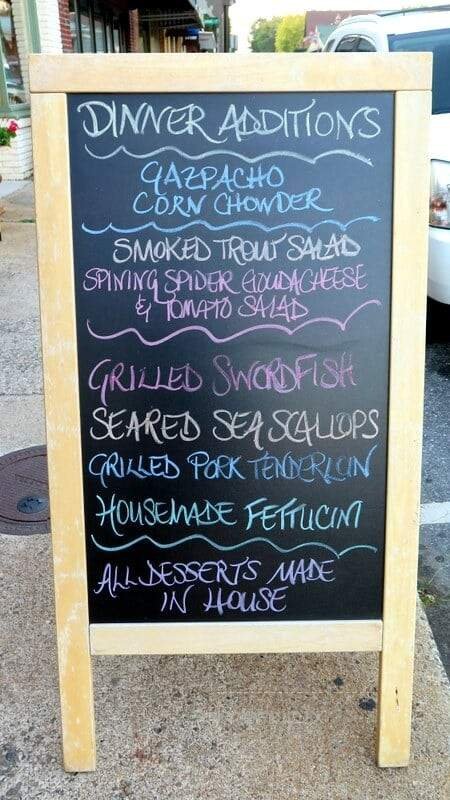 DINNER ADDITIONS
GAZPACHO
CORN CHOWDER
SMOKED TROUT SALAD
SPINING SPIDER GOUDA CHEESE
& TOMATO SALAD
GRILLED SWORDFISH
SEARED SEA SCALLOPS
GRILLED PORK TENDERLOIN
HOUSEMADE FETTUCINI
ALL DESSERTS MADE
IN HOUSE